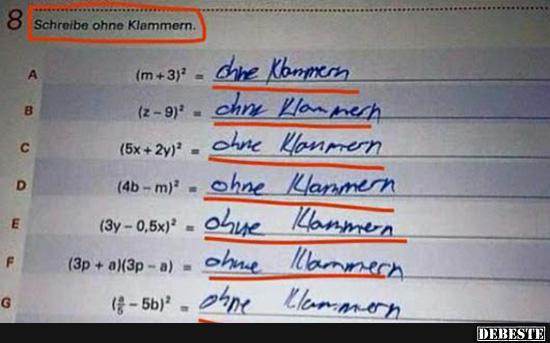 8 Schreibe ohne Klammern.
A (m + 3)² = ohne Klammern
B (z – 9)² = ohne Klammern
C (5x + 2y)² = ohne Klammern
D (4b – m)² = ohne Klammern
E (3y – 0,5x)² = ohne Klammern
F (3p + a)(3p – a) = ohne Klammern
G (a/5 – 5b)² = ohne Klammern
DEBESTE